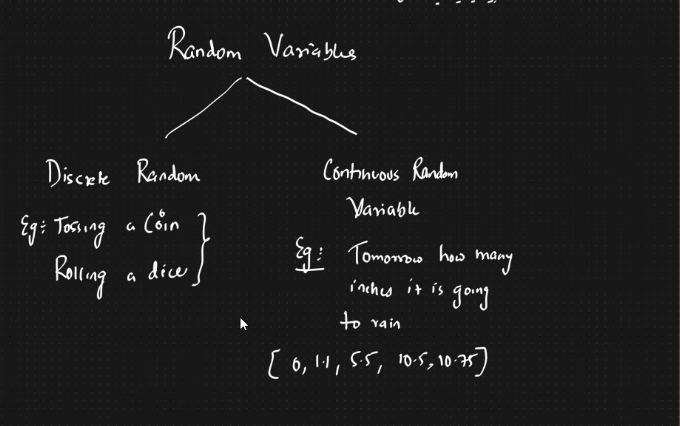 Random Variables
Discrete Random
Eg: Tossing a Coin
Rolling a dice
Continuous Random
Variable
Eg: Tomorrow how many
inches it is going
to rain
[ 0, 1.1, 5.5, 10.5, 10.75 ]